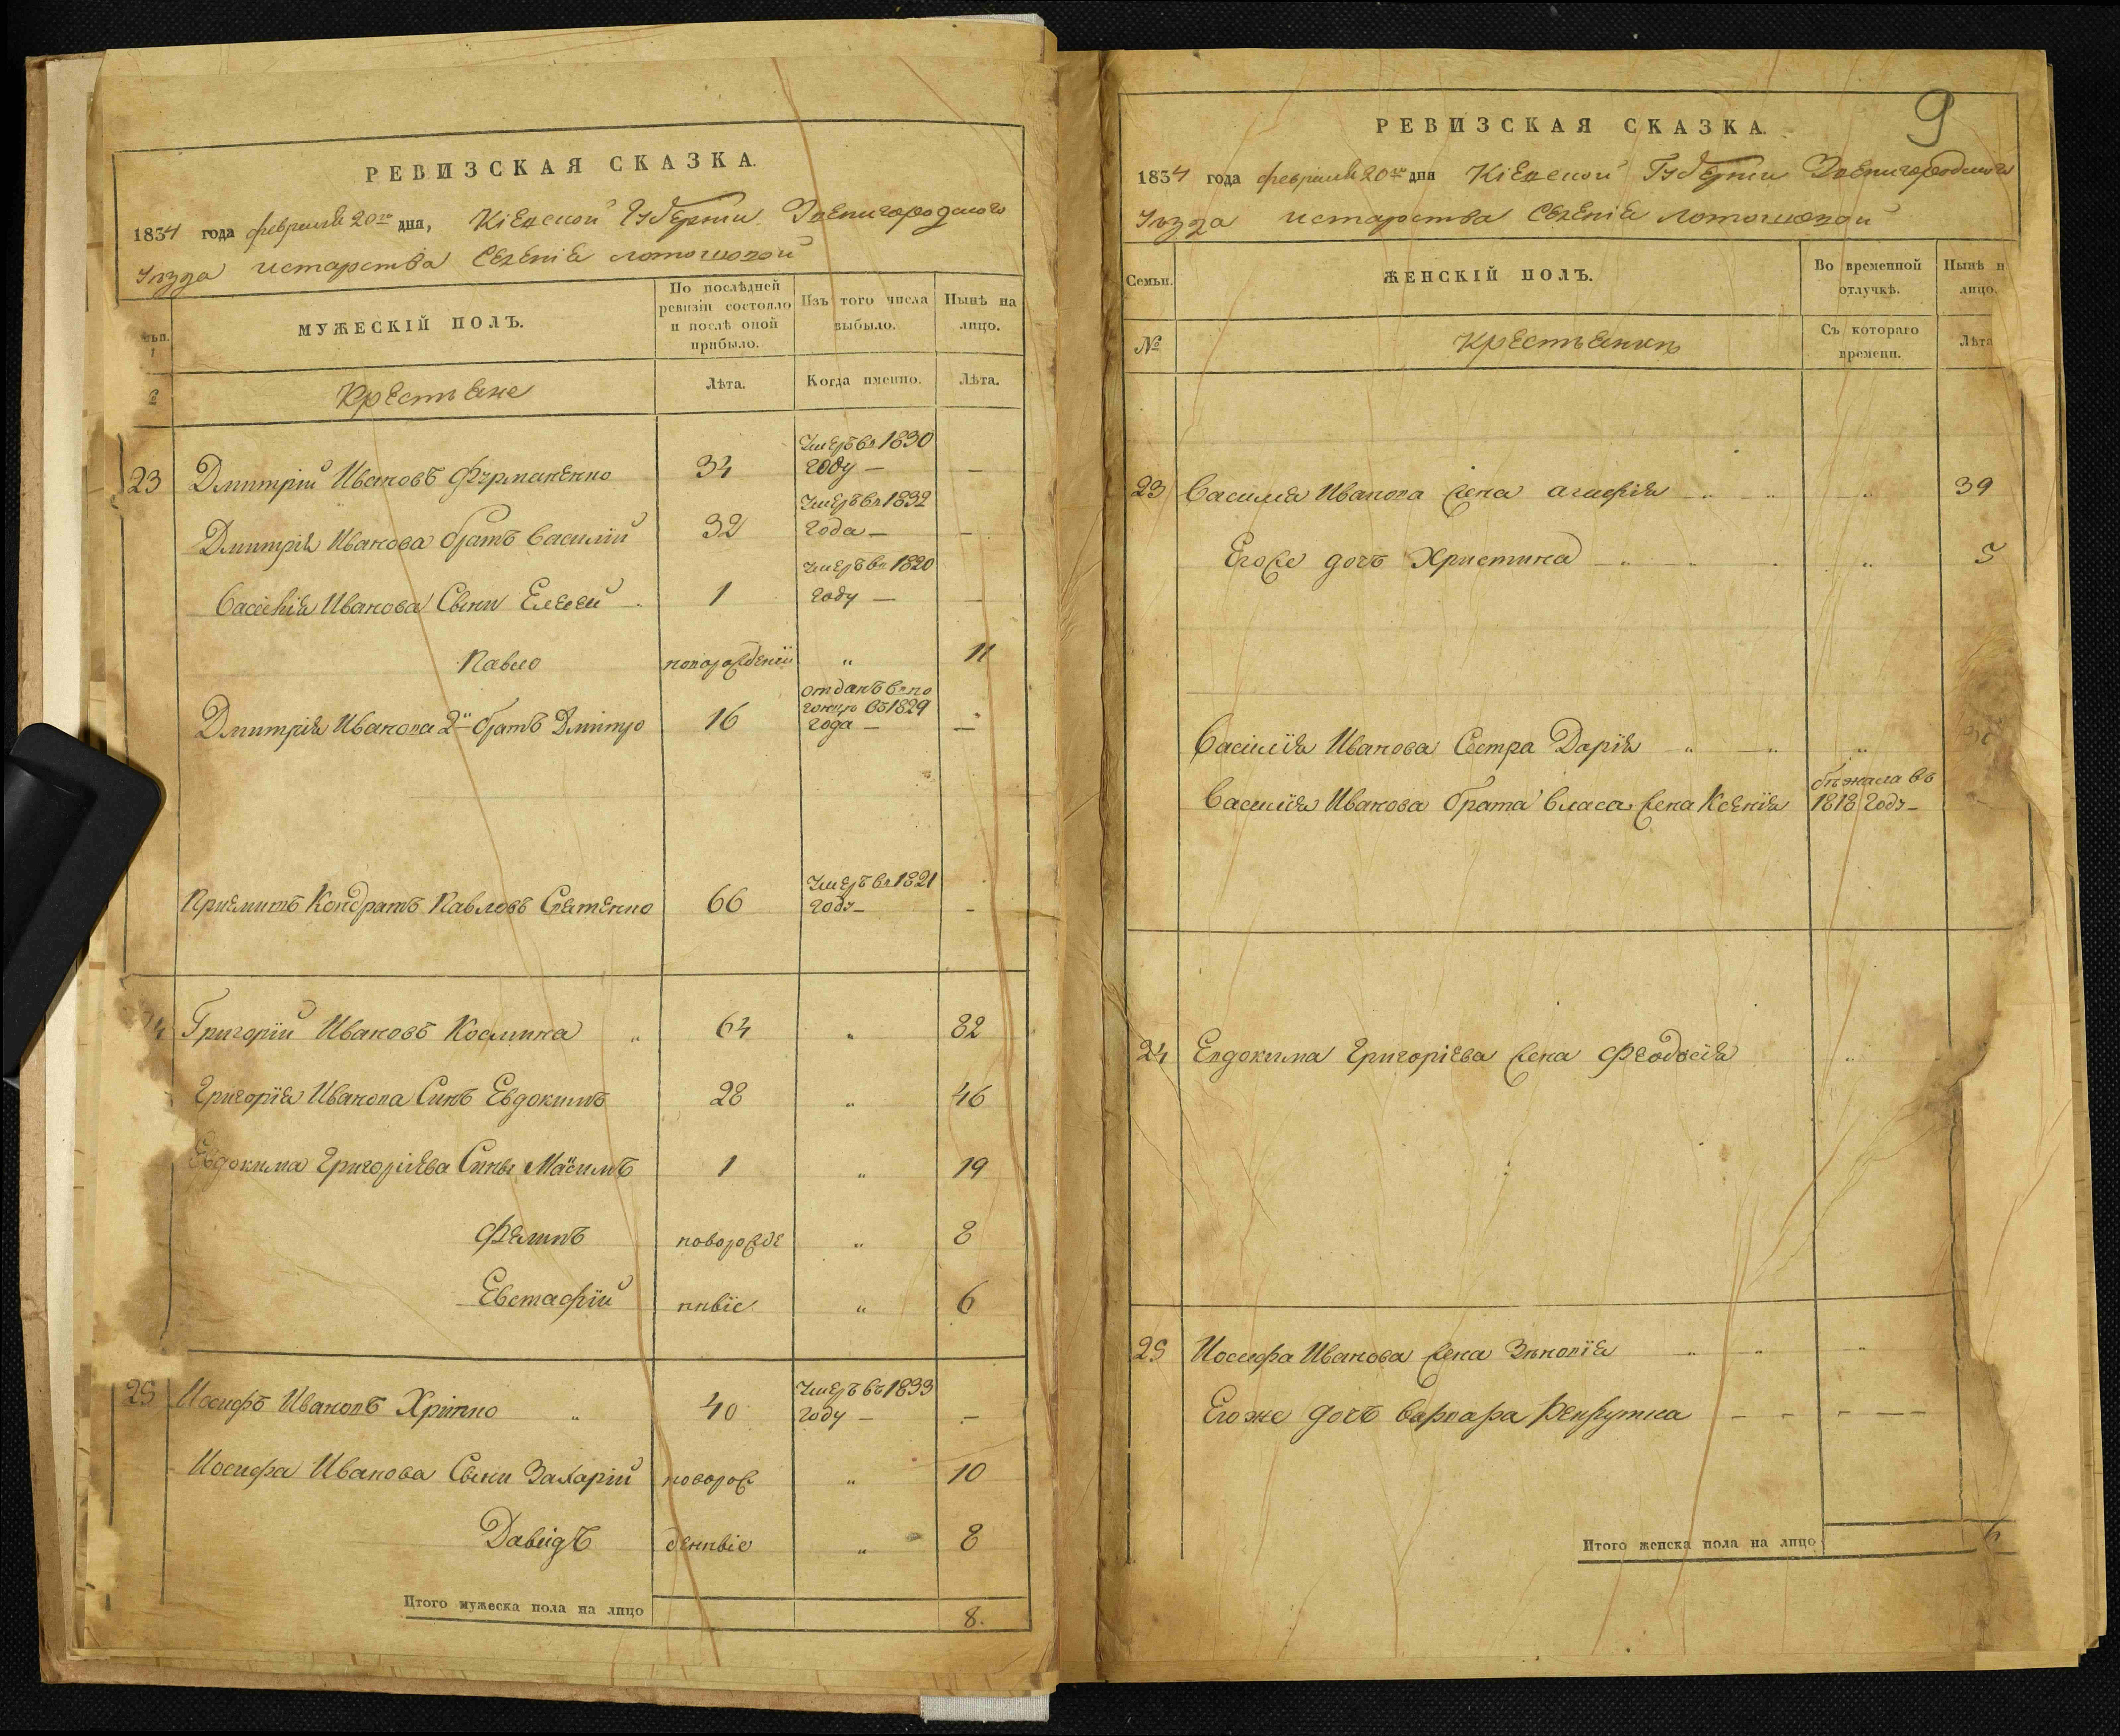 РЕВИЗСКАЯ СКАЗКА.
1834 года февраля 20го дня, Кіевской Губерніи Звенигородского
Уѣзда и старства
МУЖЕСКІЙ ПОЛЪ.
По послѣдней ревизіи состояло и послѣ оной прибыло.
Изъ того числа выбыло.
Нынѣ на лицо.
Крестьяне
Лѣта.
Когда именно.
Лѣта.
23 Дмитрій Ивановъ Фурманенко 34 Умеръ въ 1830 году — —
Дмитрія Иванова братъ Василій 32 Умеръ въ 1832 года — —
Василія Иванова Сыни Елесей 1 Умеръ въ 1820 году — —
Павло новорожденій " 11
Дмитрія Иванова 2й братъ Дмітро 16 отданъ въ 1829 года — —
Приемишъ Кондратъ Павловъ 66 Умеръ въ 1821 году — -
24 Григорій Ивановъ " 64 " 82
Григорія Иванова Синъ Евдокимъ 28 " 46
Евдокима Григоріева Сины 1 " 19
новорожде " 8
Евстафій ннвіе " 6
25 Иосифъ Ивановъ " 40 Умеръ въ 1833 году — —
Иосифа Иванова Сыни Захарій поворож " 10
Давидъ деннвіе " 8
Итого мужеска пола на лицо 8.
9
РЕВИЗСКАЯ СКАЗКА.
1834 года февраля 20го дня Кіевской Губерніи Звенигородского
Уѣзда и старства
Семьи.
ЖЕНСКІЙ ПОЛЪ.
Во временной отлучкѣ.
Нынѣ н лицо.
№
Крестьянкѣ
Съ котораго времени.
Лѣта
23 Василія Иванова жена агафія " 39
Егоже дочъ Христина " 5
Василія Иванова Сестра Дарія "
Василія Иванова брата Власа жена Ксенія бѣжала въ 1818 году —
24 Евдокима Григоріева жена Феодосія "
25 Иосифа Иванова жена Зѣновія "
Егоже дочъ Варвара
Итого женска пола на лицо 6